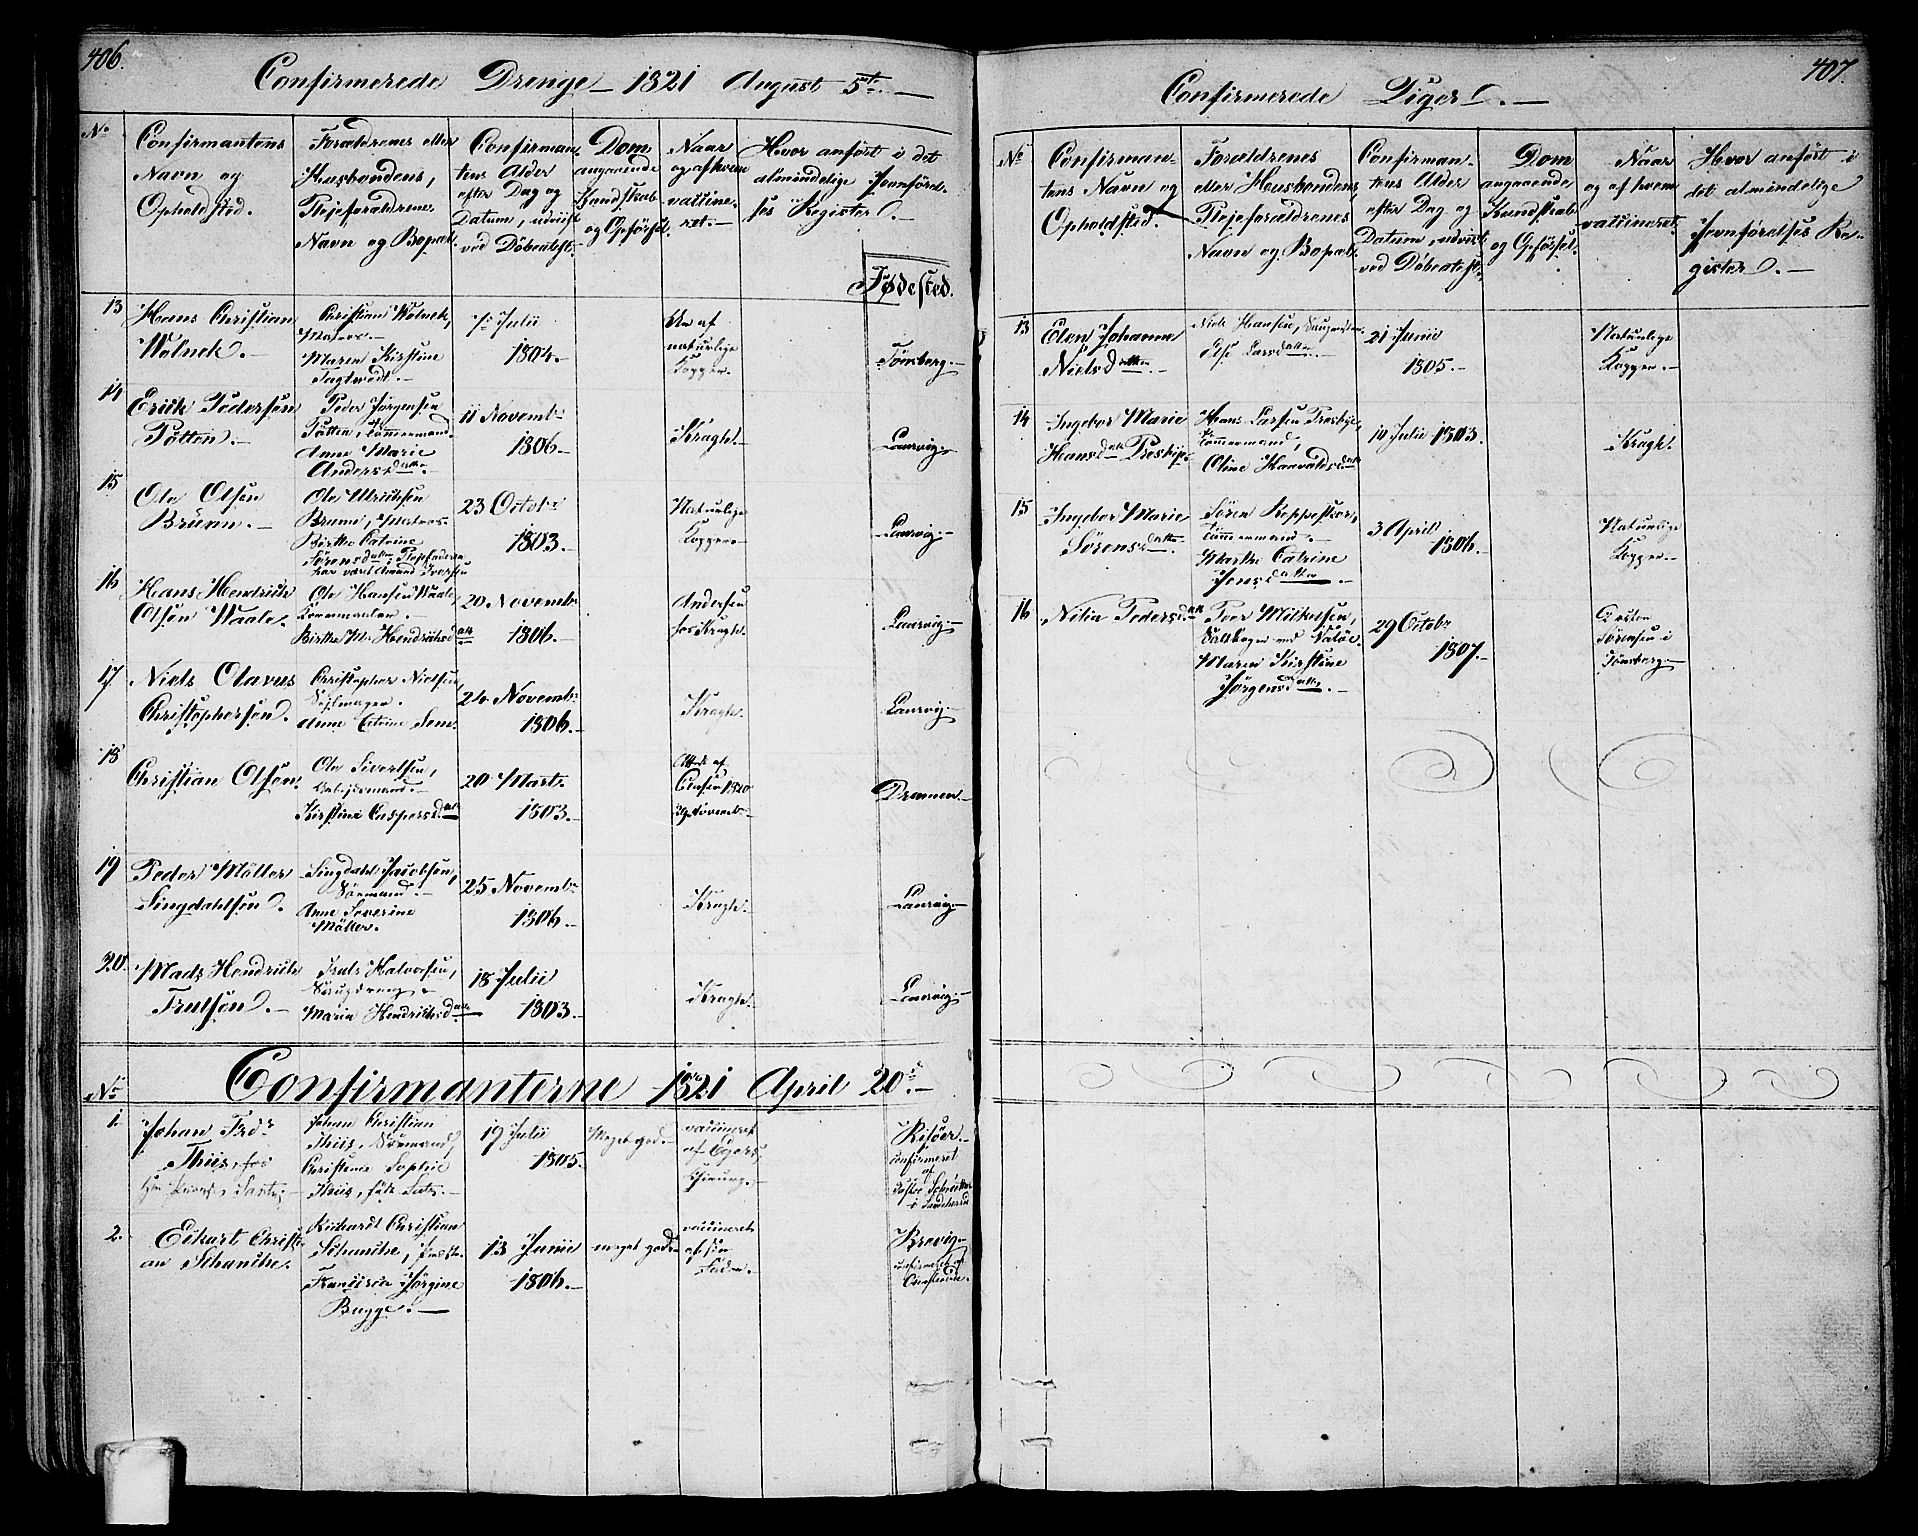 406.
Confirmerede Drenge 1821 August 5te.
No
Confirmantens
Navn og
Opholdsted.
Forældrenes eller
Husbondens,
Plejeforældrenes
Navn og Bopæl.
Confirman-
tens Alder
efter Dag og
Datum, udviist
ved Döbeatest.
Dom
angaaende
Kundskab
og Opförsel.
Naar
og af hvem
vaccine-
ret.
Hvor anfört i det
almindelige Jevnförel-
ses Register.
Födested.
13
Hans Christian
Wölnek.
Christian Wölnek,
Matros.
Maren Kirstine
7 Julii
1804.
af
naturlige
Kopper.
Tönsberg.
14
Erich Pedersen
Pötten.
Peder Jörgensen
Pötten, Tömmermand.
Anne Marie
Andersdatter.
11 Novembr
1806.
Kragh.
Laurvig.
15
Ole Olsen
Brunn.
Ole Ulrichsen
Brunn, Matros.
Birthe Catrine
Sörensdatter, Plejefaderen
har været Amund Iversen
23 Octobr
1803.
Naturlige
Kopper.
Laurvig.
16
Hans Hendrich
Olsen Waale.
Ole Hansen Waale,
Birthe M. Hendrichsdatt
20 Novembr
1806.
Andersen
hos Kragh.
Laurvig.
17
Niels Olavus
Christophersen.
Christopher Nielsen,
Sejlmager.
Anne Catrine Sem.
24 Novembr
1806.
Kragh.
Laurvig.
18
Christian Olsen.
Ole Sivertsen,
Arbejdsmand.
Kirstine Caspersdatt
20 Marts
1803.
Attest af
Clausen 1820
29 Novemb.
Drammen.
19
Peder Möller
Lingdahlsen.
Lingdahl Jacobsen,
Sömand.
Anne Severine
Möller.
25 Novembr
1806.
Kragh.
Laurvig.
20.
Mads Hendrich
Trulsen.
Truls Halvorsen,
Saugdreng.
Maria Hendrichsdatt
18 Julii
1803.
Kragh.
Laurvig.
No
Confirmanterne 1821 April 20de.
1.
Johan Fredr
Thiis, hos
Johan Christian
Thiis, Sömand,
Christine Sophie
Thiis, föd
19 Julii
1805.
Meget god.
vaccineret
af Egers,
Chirurg.
Risöer.
confirmeret
af
Pastor
i Sandherred
2.
Eckart Christi-
an Schanche.
Richardt Christian
Schanche, Præst.
Francisca Jörgine
Bugge.
13 Junii
1806.
meget god.
vaccineret
af sin
Fader.
Brevig.
confirmeret af
407.
Confirmerede Piger.
No
Confirman-
tens Navn og
Opholdsted.
Forældrenes
eller Husbondens,
Plejeforældrenes
Navn og Bopæl.
Confirman-
tens Alder
efter Dag og
Datum, udviist
ved Döbeatest.
Dom
angaaende
Kundskab
og Opförsel.
Naar
og af hvem
vaccineret.
Hvor anfört i
det almindelige
Jevnförelses Re-
gister.
13
Elen Johanne
Nielsdatter.
Niels Hansen,
Else Larsdatter.
21 Junii
1805.
Naturlige
Kopper.
14
Ingebor Marie
Hansdatt Presbye.
Hans Larsen Presbye,
Tömmermand,
Oline Haavaldsdatt
10 Julii 1803.
Kragh.
15
Ingebor Marie
Sörensdatter.
Sören Keppeskor,
Tömmermand.
Marthe Catrine
Jensdatter.
3 April
1806.
Naturlige
Kopper.
16
Nilia Pedersdatt
Peer Mikkelsen,
Maren Kirstine
Jörgensdatter.
29 Octobr
1807.
Sörensen i
Tönsberg.